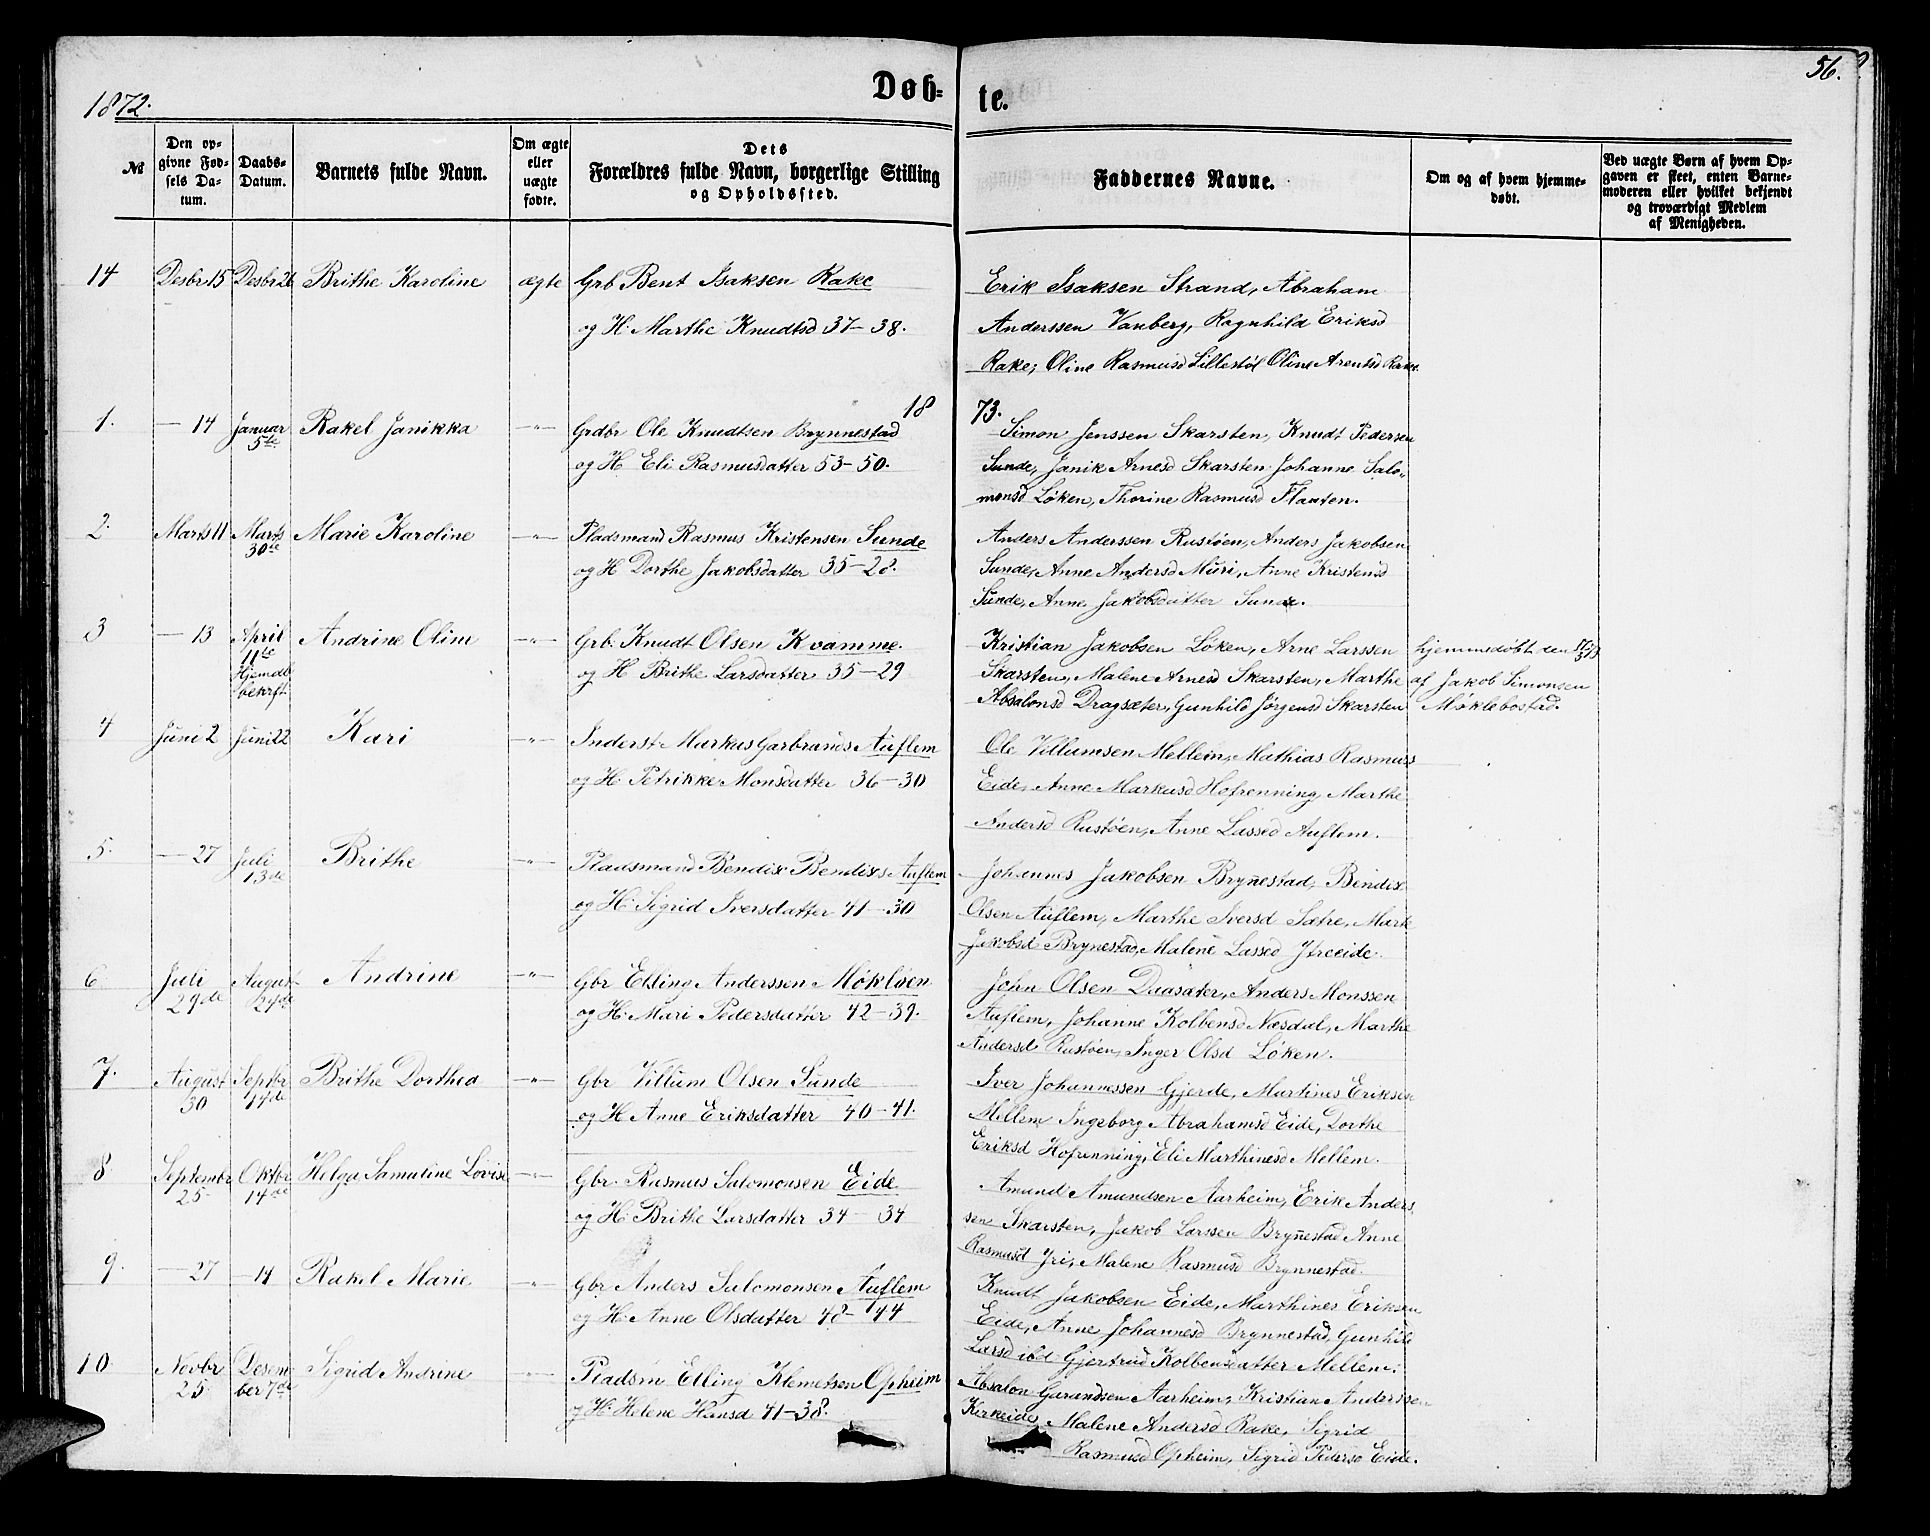 1872.
Døb-
te.
56.
№
Den op-
givne Fød-
sels Da-
tum.
Daabs-
Datum.
Barnets fulde Navn.
Om ægte
eller
uægte
fødte.
Dets
Forældres fulde Navn, borgerlige Stilling
og Opholdssted.
Faddernes Navne.
Om og af hvem hjemme-
døbt.
Ved uægte Børn af hvem Op-
gaven er skeet, enten Barne-
moderen eller hvilket bekjendt
og troværdigt Medlem
af Menigheden.
14 Desbr 15 Desbr 26 Brithe Karoline ægte Grb Bent Isaksen Rake
og H. Marthe Knudtsd 37-38.
Erik Isaksen Strand, Abraham
Anderssen Vanberg, Ragnhild Eriksd
Rake, Oline Rasmusd Lillestøl Oline Arentsd Rake.
18 73.
1. — 14 Januar 5te Rakel Janikka —"— Grdbr Ole Knudtsen Brynnestad
og H Eli Rasmusdatter 53-50.
Simon Jenssen Skarsten, Knudt Pedersen
Sunde, Janik Arnesd Skarsten Johanne Salo-
monsd Løken, Thorine Rasmusd Flaaten.
2. Marts 11 Marts 30te Marie Karoline —"— Pladsmand Rasmus Kristensen Sunde
og H Dorthe Jakobsdatter 35-28.
Anders Anderssen Rustøen, Anders Jakobsen
Sunde, Anne Andersd Muri, Anne Kristensd
Sunde, Anne Jakobsdatter Sunde.
3 — 13 April 11te Hjemdb bekrft. Andrine Oline —"— Grb. Knudt Olsen Kvamme.
og H Brithe Larsdatter 35-29
Kristian Jakobsen Løken, Arne Larssen
Skarsten, Malene Arnesd Skarsten, Marthe
Absalonsd Dragsæter, Gunhild Jørgensd Skarsten
hjemmedøbt den
af Jakob Simonsen
Møklebostad.
4 Juni 2 Juni 22 Kari —"— Inderst Markus Garbrands Auflem
og H Petrikke Monsdatter 36-30
Ole Villumsen Mellem, Mathias Rasmuss
Eide, Anne Markusd Hofrenning, Marthe
Andersd Rustøen, Anne Lassed Auflem.
5. — 27 Juli 13de Brithe —"— Pladsmand Bendix Bendixs Auflem
og H: Sigrid Iversdatter 41-30
Johannes Jakobsen Brynestad, Bendix
Olsen Auflem, Marthe Iversd Sætre, Mart
Jakobsd Brynestad, Malene Lassed Ytreeide.
6 Juli 29de August 24de Andrine —"— Gbr Elling Anderssen Møkløen
og H. Mari Pedersdatter 42-39.
John Olsen Daasæter, Anders Monssen
Auflem, Johanne Kolbensd Næsdal, Marthe
Andersd Rustøen, Inger Olsd Løken.
7. August 30 Septbr 14de Brithe Dorthea —"— Gbr Villum Olsen Sunde
og H Anne Eriksdatter 40-41.
Iver Johannessen Gjerde, Martines Eriksen
Mellem Ingeborg Abrahamsd Eide, Dorthe
Eriksd Hofrenning, Eli Marthinesd Mellem.
8 Septembr 25 Oktbr 14de Helga Samaline Lovise —"— Gbr. Rasmus Salomonsen Eide
og H: Brithe Larsdatter 34-34
Amund Amundsen Aarheim, Erik Anders
sen Skarsten, Jakob Larssen Brynestad Anne
Rasmusd Yri, Malene Rasmusd Brynnestad.
9. — 27 — 14 Rakel Marie —"— Gbr Anders Salomonsen Auflem
og H: Anne Olsdatter 48-44
Knudt Jakobsen Eide, Marthines Eriksen
Eide, Anne Johannesd Brynnestad, Gunhild
Larsd ibd Gjertrud Kolbensdatter Mellem.
10. Novbr 25 Desem ber 7de Sigrid Andrine —"— Pladsm Elling Klemetsen Opheim
og H. Helene Hansd 41-38.
Absalon Garandsen Aarheim, Kristian Anderssen
Kirkeide, Malene Andersd Rake, Sigrid
Rasmusd Opheim, Sigrid Pedersd Eide.